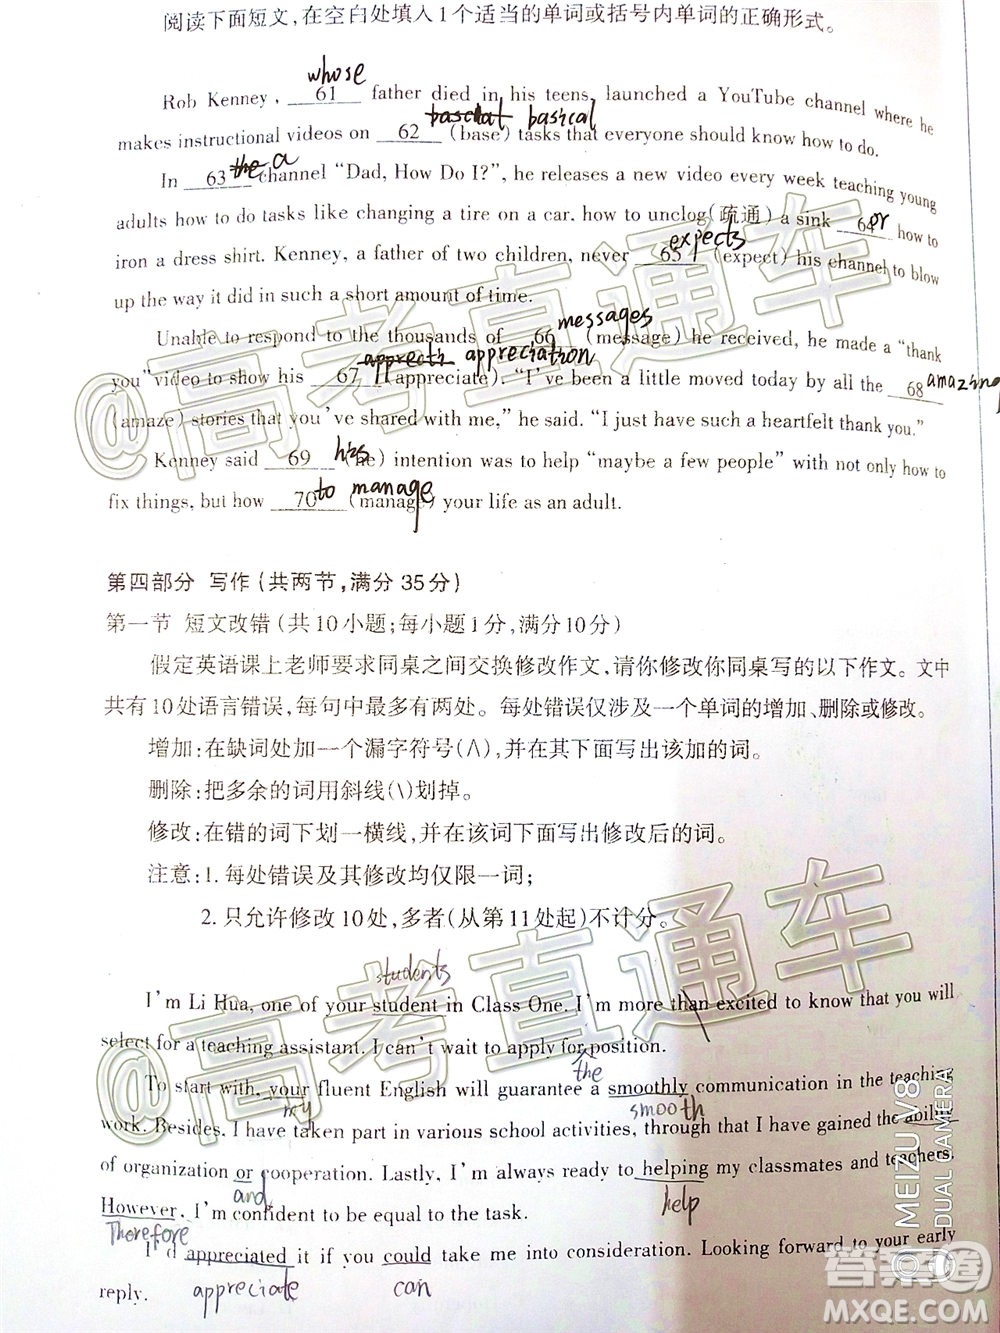 阅读下面短文,在空白处填入1个适当的单词或括号内单词的正确形式。
whose
Rob Kenney, 61 father died in his teens, launched a YouTube channel where he
basical
makes instructional videos on 62 (base) tasks that everyone should know how to do.
the a
In 63 channel "Dad, How Do I?", he releases a new video every week teaching young
adults how to do tasks like changing a tire on a car. how to unclog(疏通) a sink 64 or how to
expects
iron a dress shirt. Kenney, a father of two children, never 65 (expect) his channel to blow
up the way it did in such a short amount of time.
messages
Unable to respond to the thousands of 66 (message) he received, he made a "thank
appreciation
you" video to show his 67 (appreciate). "I've been a little moved today by all the 68 amazing
(amaze) stories that you've shared with me," he said. "I just have such a heartfelt thank you."
his
Kenney said 69 (he) intention was to help "maybe a few people" with not only how to
to manage
fix things, but how 70 (manage) your life as an adult.
第四部分 写作(共两节,满分35分)
第一节 短文改错(共10小题;每小题1分,满分10分)
假定英语课上老师要求同桌之间交换修改作文,请你修改你同桌写的以下作文。文中
共有10处语言错误,每句中最多有两处。每处错误仅涉及一个单词的增加、删除或修改。
增加:在缺词处加一个漏字符号(∧),并在其下面写出该加的词。
删除:把多余的词用斜线(\)划掉。
修改:在错的词下划一横线,并在该词下面写出修改后的词。
注意:1.每处错误及其修改均仅限一词;
2.只允许修改10处,多者(从第11处起)不计分。
students
I'm Li Hua, one of your student in Class One. I'm more than excited to know that you will
select for a teaching assistant. I can't wait to apply for position.
the
To start with, your fluent English will guarantee a smoothly communication in the teaching
my smooth
work. Besides, I have taken part in various school activities, through that I have gained the ability
of organization or cooperation. Lastly, I'm always ready to helping my classmates and teachers.
and help
However, I'm confident to be equal to the task.
Therefore
I'd appreciated it if you could take me into consideration. Looking forward to your early
reply. appreciate can
@高考直通车
@高考直通车
MEIZU V8
DUAL CAMERA
答案圈
MXQE.COM